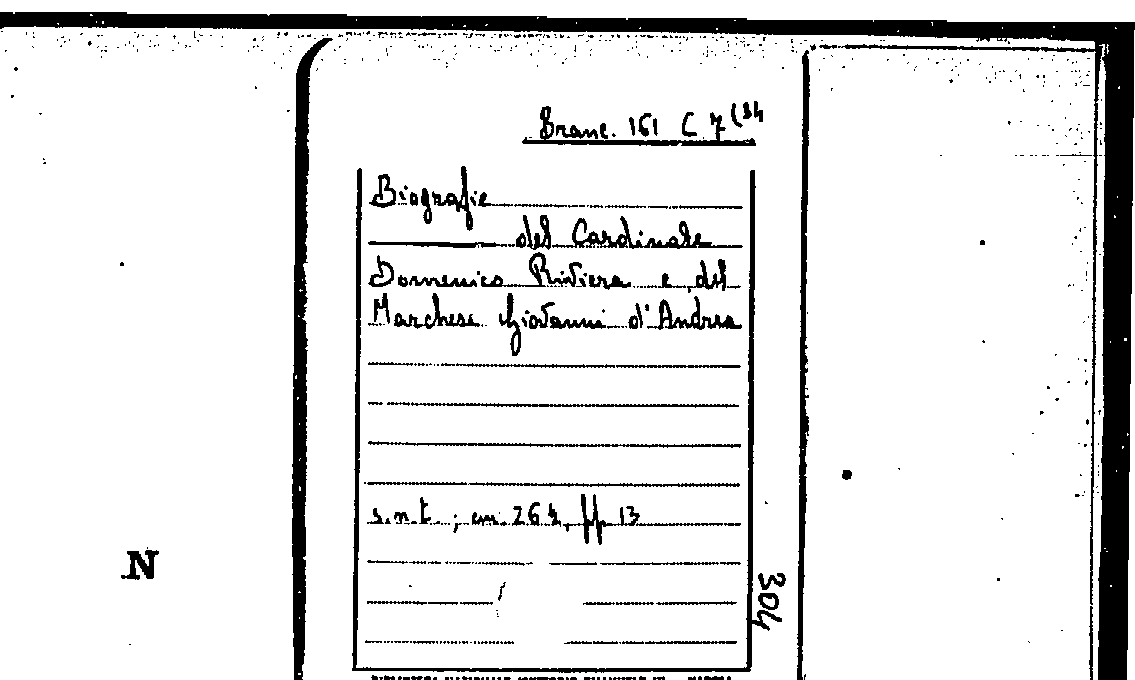 Branc. 161 C 7 (34
Biografie
del Cardinale
Domenico Riviera e del
Marchese Giovanni d'Andrea
s.n.t. ; cm. 264, pp 13
304
N